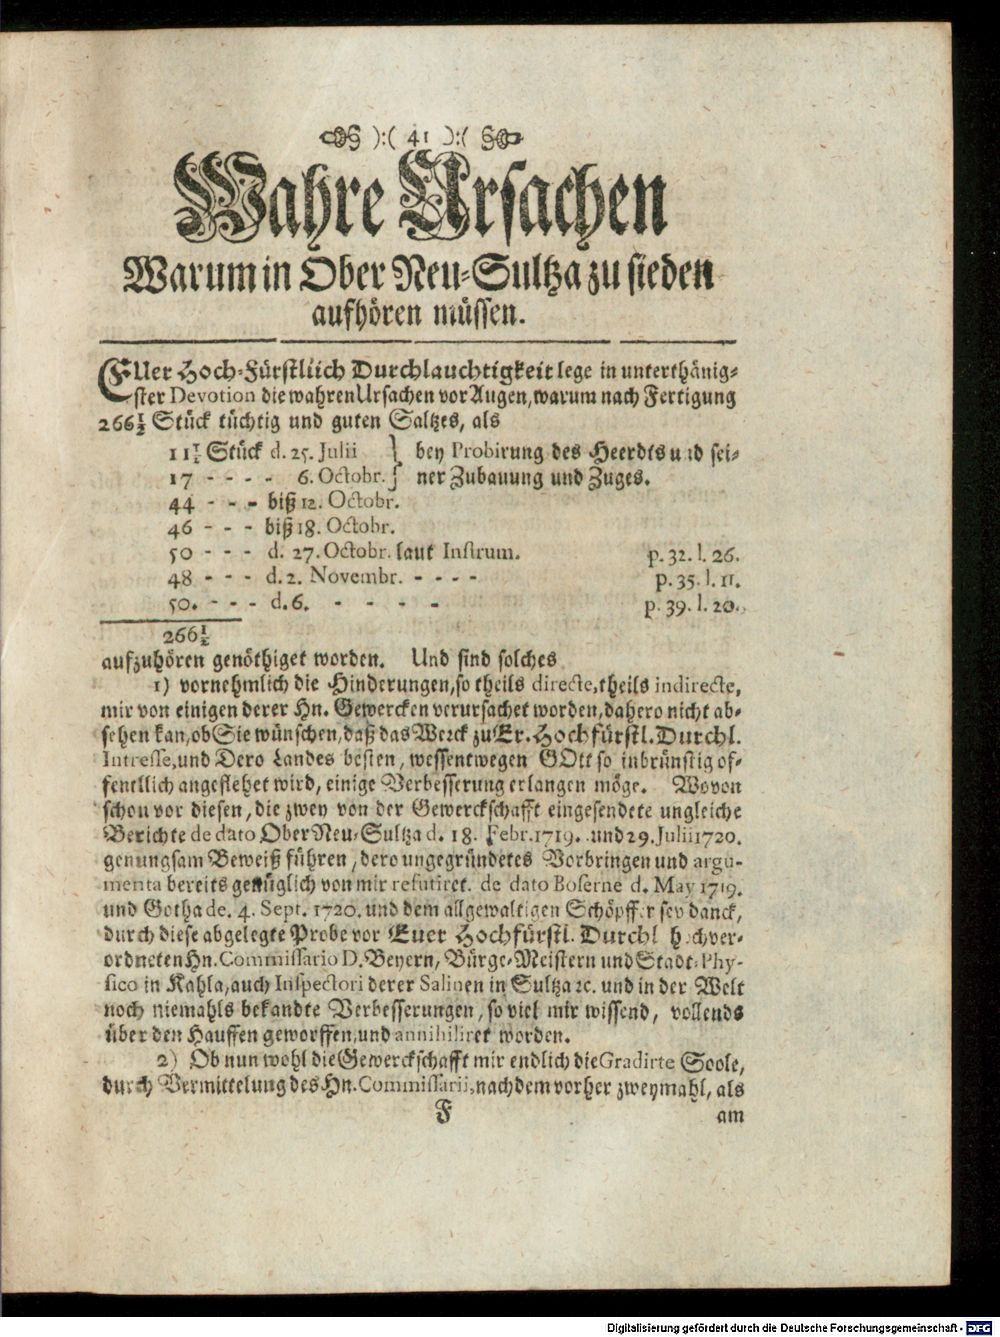 ):( 41 ):(
Wahre Ursachen
Warum in Ober Neu-Sultza zu sieden
aufhören müssen.
EUer Hoch-Fürstliich Durchlauchtigkeit lege in unterthänig-
ster Devotion die wahren Ursachen vor Augen, warum nach Fertigung
266½ Stück tüchtig und guten Saltzes, als
11½ Stück d. 25. Julii } bey Probirung des Heerdts und sei-
17 - - - - 6. Octobr. } ner Zubauung und Zuges.
44 - - - biß 12. Octobr.
46 - - - biß 18. Octobr.
50 - - - d. 27. Octobr. laut Instrum. p. 32. l. 26.
48 - - - d. 2. Novembr. - - - - p. 35. l. 11.
50. - - - d. 6. - - - - p. 39. l. 20.
266½
aufzuhören genöthiget worden. Und sind solches
1) vornehmlich die Hinderungen, so theils directe, theils indirecte,
mir von einigen derer Hn. Gewercken verursachet worden, dahero nicht ab-
sehen kan, ob Sie wünschen, daß das Werck zu Er. Hochfürstl. Durchl.
Intresse, und Dero Landes besten, wessentwegen GOtt so inbrünstig of-
fentlich angeflehet wird, einige Verbesserung erlangen möge. Wovon
schon vor diesen, die zwey von der Gewerckschafft eingesendete ungleiche
Berichte de dato Ober Neu-Sultza d. 18. Febr. 1719. und 29. Julii 1720.
genungsam Beweiß führen, dero ungegründetes Vorbringen und argu-
menta bereits genüglich von mir refutiret. de dato Boserne d. May 1719.
und Gotha de. 4. Sept. 1720. und dem allgewaltigen Schöpffer sey danck,
durch diese abgelegte Probe vor Euer Hochfürstl. Durchl hochver-
ordneten Hn. Commissario D. Beyern, Bürge-Meistern und Stadt-Phy-
sico in Kahla, auch Inspectori derer Salinen in Sultza ꝛc. und in der Welt
noch niemahls bekandte Verbesserungen, so viel mir wissend, vollends
über den Hauffen geworffen, und annihiliret worden.
2) Ob nun wohl die Gewerckschafft mir endlich die Gradirte Soole,
durch Vermittelung des Hn. Commissarii, nachdem vorher zweymahl, als
F am
Digitalisierung gefördert durch die Deutsche Forschungsgemeinschaft - DFG